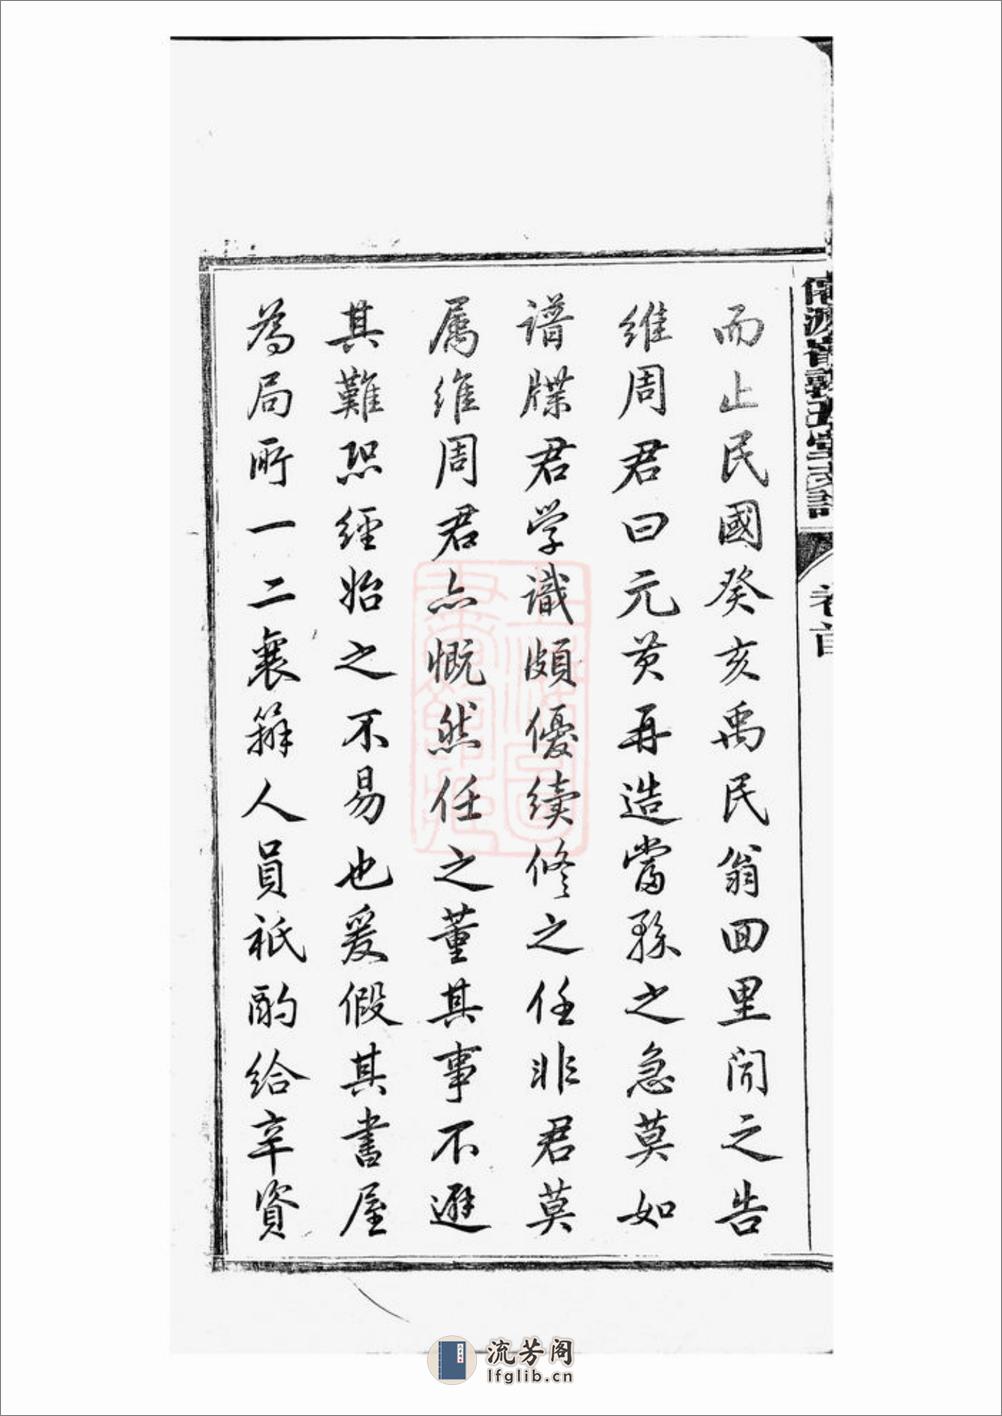 而止民國癸亥禹民翁回里聞之告
維周君曰元黃再造當務之急莫如
譜牒君学識頗優續修之任非君莫
屬維周君亦慨然任之董其事不避
其難然經始之不易也爰假其書屋
為局所一二襄辦人員祇酌給辛資
卷首
流芳阁
lfglib.cn